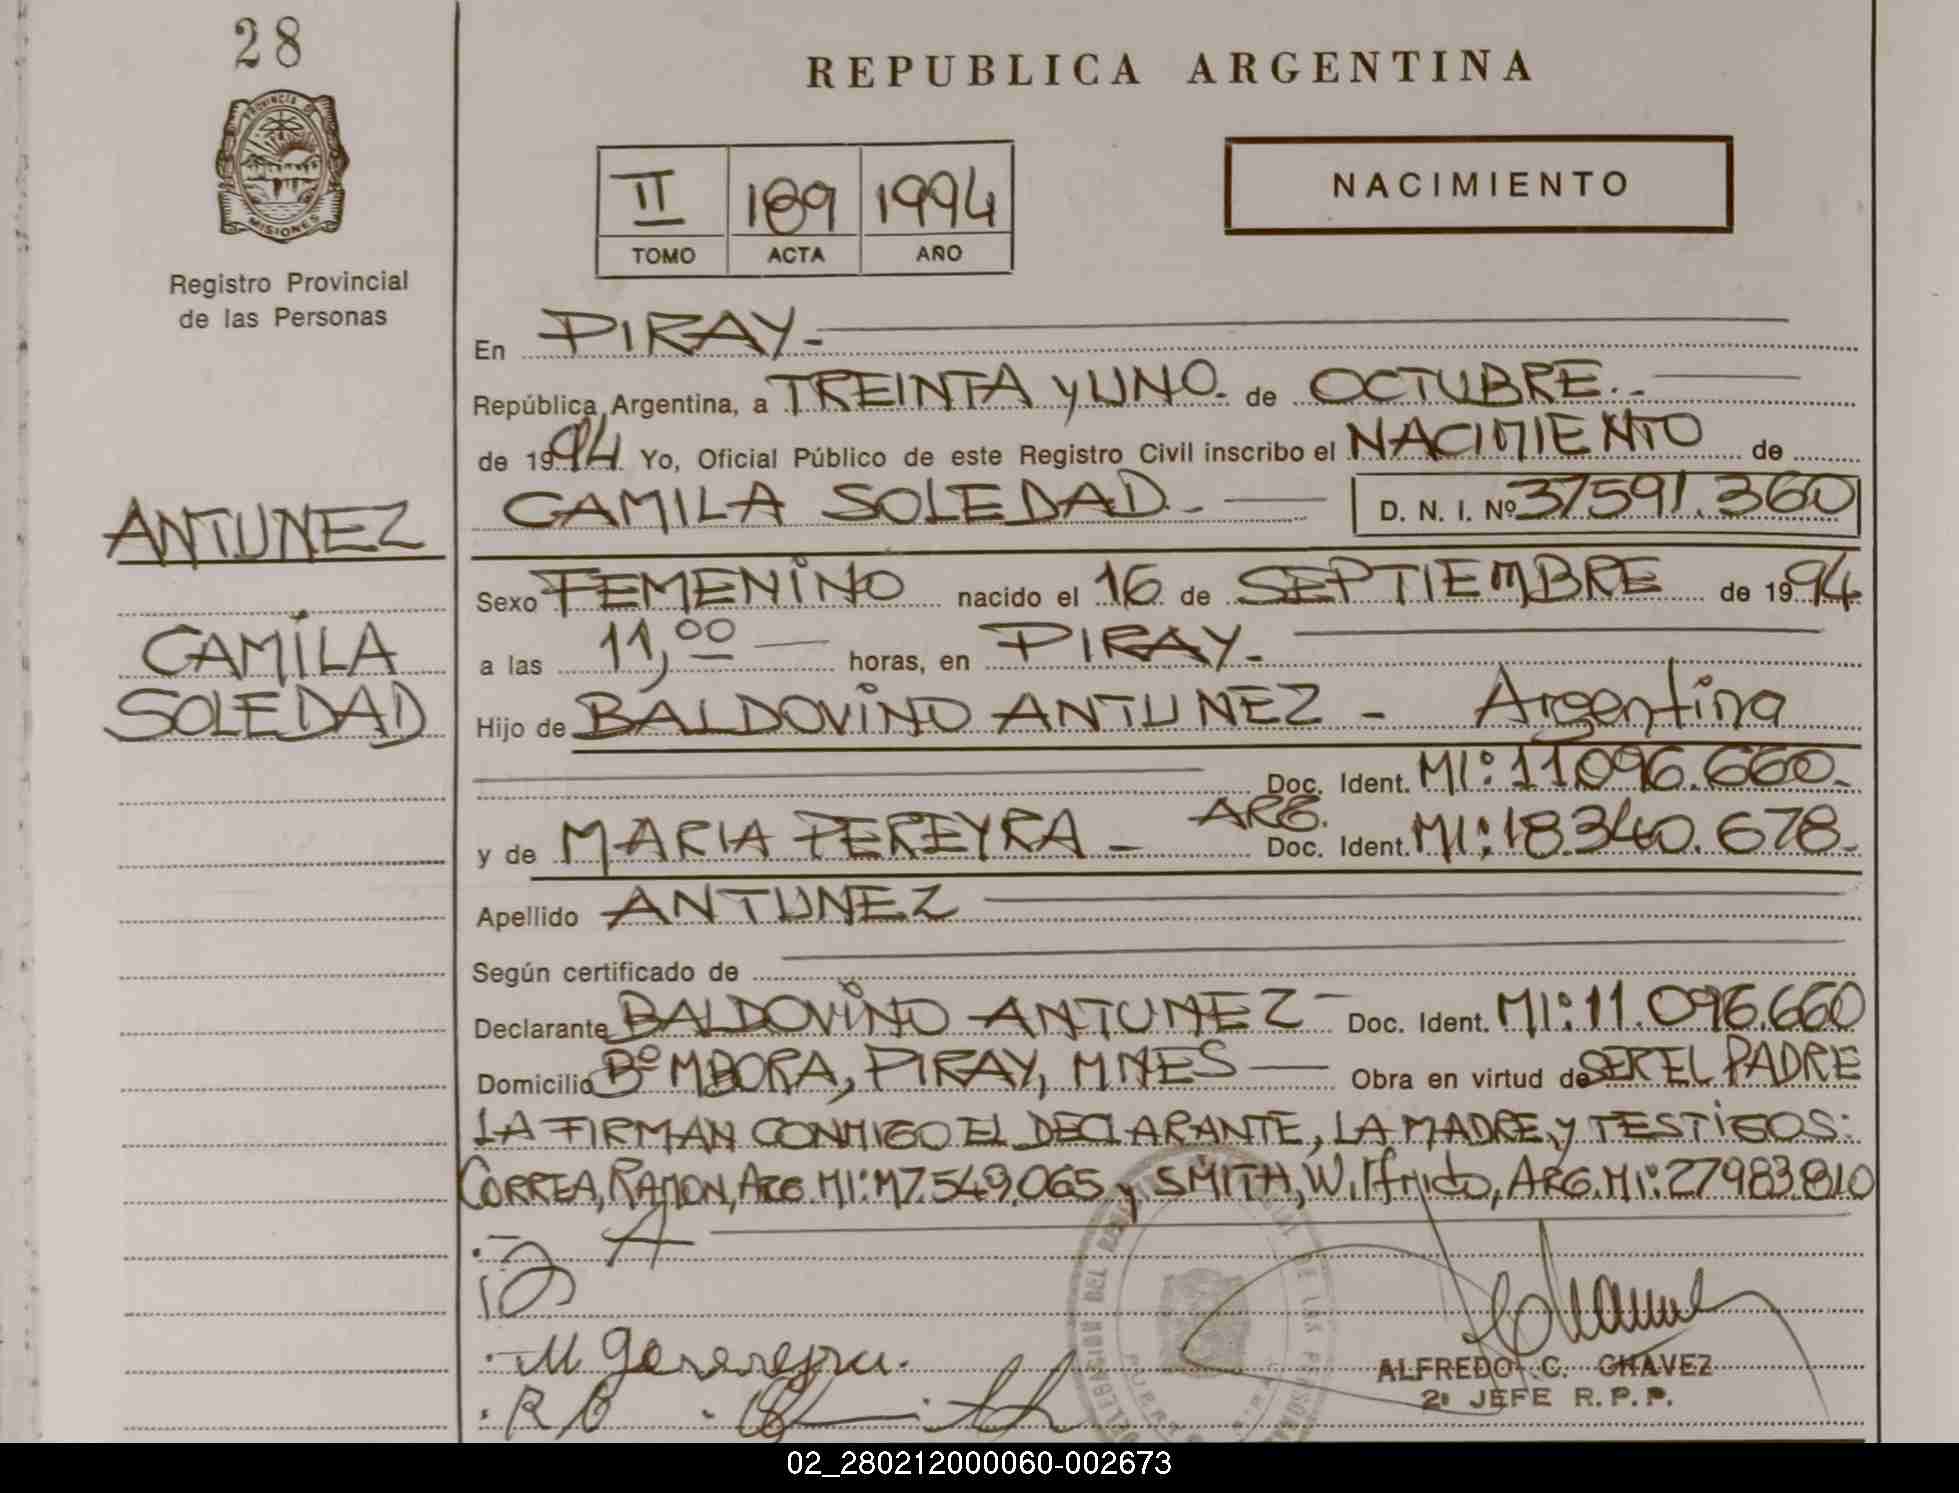 28
PROVINCIA DE
MISIONES
Registro Provincial
de las Personas
ANTUNEZ
CAMILA
SOLEDAD
REPUBLICA ARGENTINA
II 189 1994
TOMO ACTA AÑO
NACIMIENTO
En PIRAY.-
República Argentina, a TREINTA y UNO.- de OCTUBRE.-
de 1994. Yo, Oficial Público de este Registro Civil inscribo el NACIMIENTO de
CAMILA SOLEDAD.- D. N. I. Nº 37591.360
Sexo FEMENINO nacido el 16 de SEPTIEMBRE de 1994
a las 11,00 horas, en PIRAY.-
Hijo de BALDOVINO ANTUNEZ - Argentina
Doc. Ident. MI: 11.096.660.-
y de MARIA PEREYRA - ARG. Doc. Ident. MI: 18.340.678.-
Apellido ANTUNEZ
Según certificado de
Declarante BALDOVINO ANTUNEZ - Doc. Ident. MI: 11.096.660
Domicilio Bº MBORA, PIRAY, MNES Obra en virtud de SER EL PADRE
LA FIRMAN CONMIGO EL DECLARANTE, LA MADRE, y TESTIGOS:
CORREA, RAMON, ARG. MI: M7.549.065 y SMITH, Wilfrido, ARG. MI: 27983.810
ALFREDO C. CHAVEZ
2º JEFE R. P. P.
02_280212000060-002673